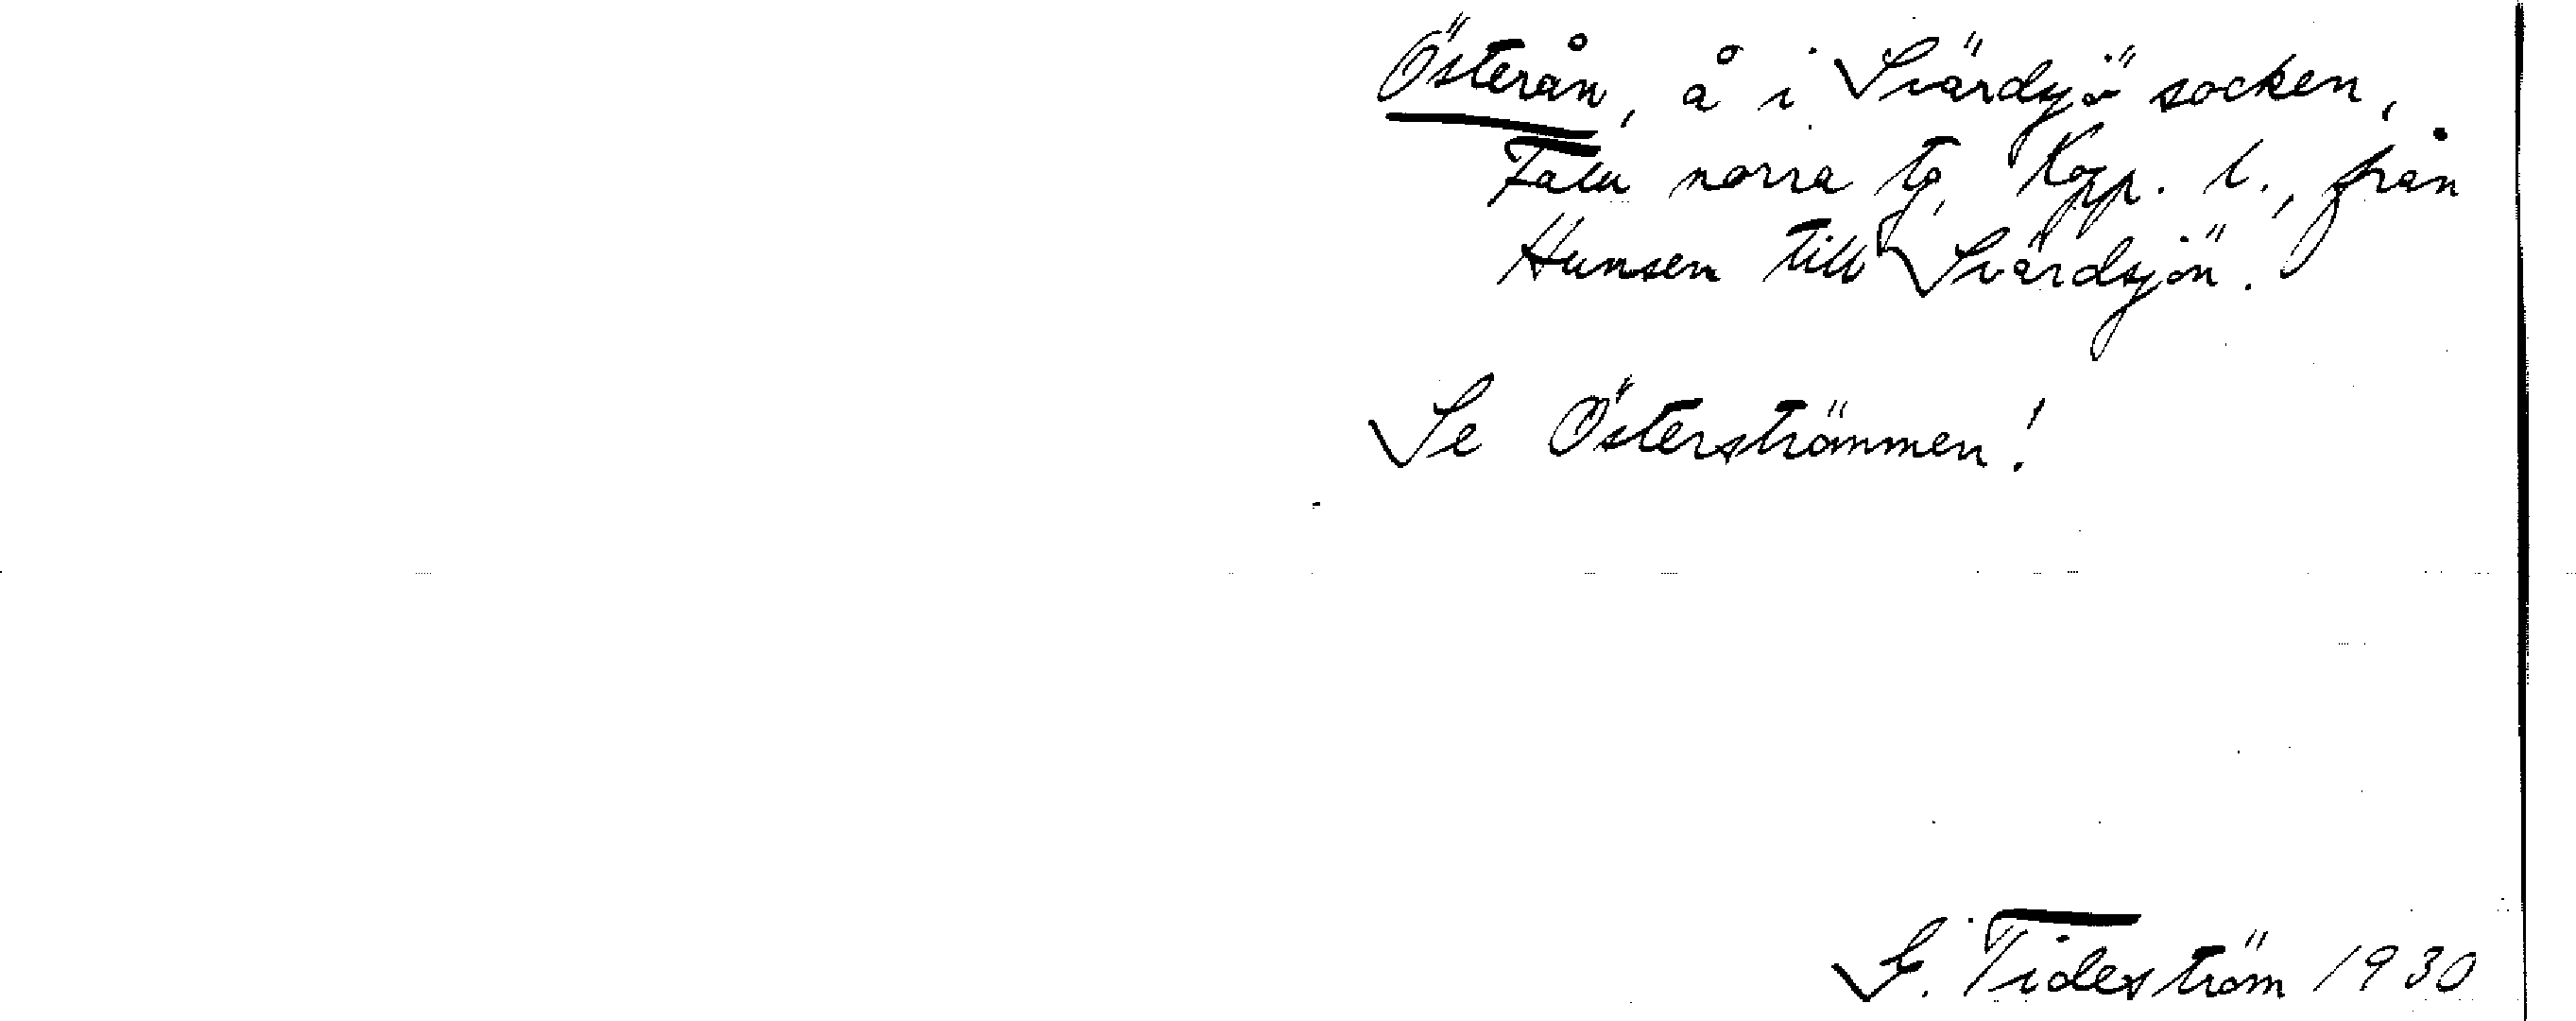 Österån, å i Svärdsjö socken,
Falu norra tg, Kopp. l., från
Hunsen till Svärdsjön.
Se Österströmmen!
G. Tideström 1930